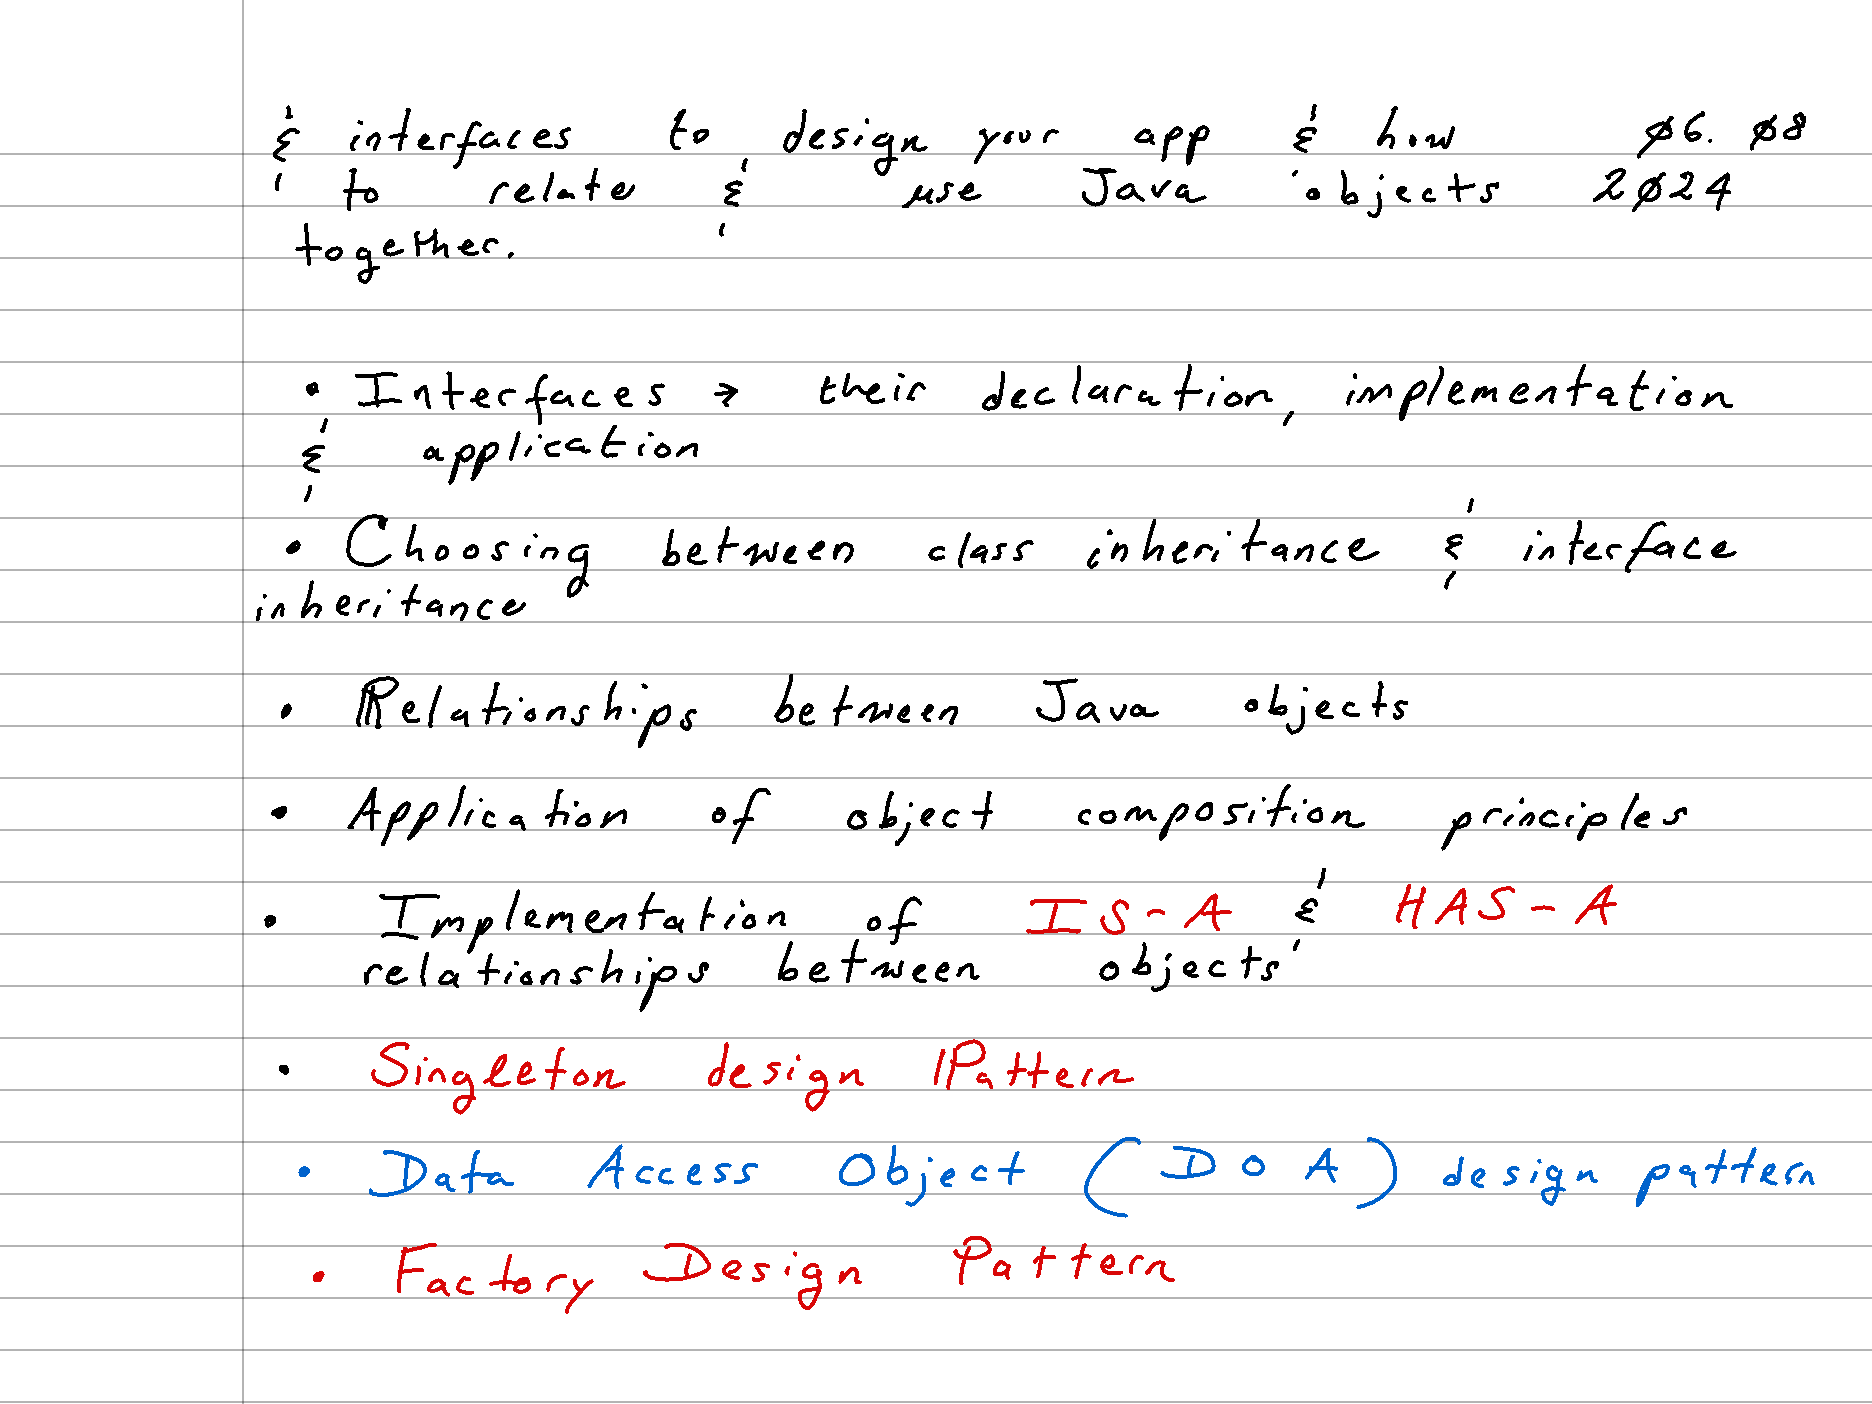 & interfaces to design your app & how ø6. ø8
to relate & use Java objects 2ø24
together.
• Interfaces → their declaration, implementation
& application
• Choosing between class inheritance & interface
inheritance
• Relationships between Java objects
• Application of object composition principles
• Implementation of IS-A & HAS-A
relationships between objects
• Singleton design Pattern
• Data Access Object (DOA) design pattern
• Factory Design Pattern